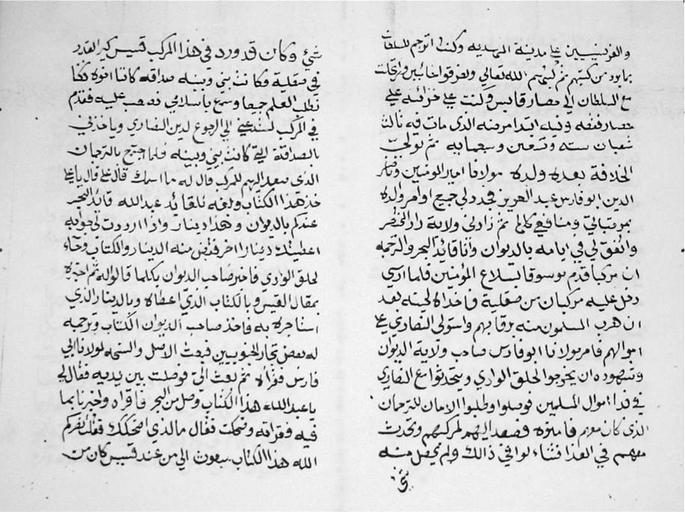 والفرنسيين على مدينة المهدية وكنت اترجم للسلطان
ما يرد من كتبهم ثم كشفهم الله تعالى وتفرقوا خائبين وارتحلت
مع السلطان الى حصار قابس وليت على خزائنه على
حصار قفصة وفيه ابتدا مرضه الذي مات فيه ثالث
شعبان سنة وتسعين وسبعمايه ثم تولى
الخلافة بعده ولده مولانا امير المومنين وناصر
الدين ابو فارس عبد العزيز فجدد لي جميع اوامر والده
بمرتباتي ومنافعي كلها ثم زادني ولاية دار المختص
واتفق لي في ايامه بالديوان وانا قايد البحر والترجمة
ان مركبا قدم موسوقا بسلاع المؤمنين فلما ارسى
دخل عليه مركبان من صقلية فاخذاه لحينه بعد
ان هرب المسلمون منه برقابهم واستولى النصارى على
اموالهم فامر مولانا ابو فارس صاحب ولاية الديوان
وشهوده ان يخرجوا لحلق الوادي ويتحدثوا مع النصارى
في فدا اموال المسلمين فوصلوا وطلبوا الامان للترجمان
الذي كان معهم فامنوه فصعد اليهم لمركبهم وتحدث
معهم في الفدا فتثاءلوا في ذالك ولم يحصل منه
شئ
شئ وكان قد ورد في هذا المركب قسيس كبير القدر
في صقلية وكانت بيني وبينه صداقه كاننا اخوة كنا
نطلب العلم جميعا وسمع باسلامي فصعب عليه فقدم
في المركب ليستدعيني الى الرجوع لدين النصارى وياخذني
بالصداقة التي كانت بيني وبينه فلما اجتمع بالترجمان
الذي صعد اليهم للمركب قال له ما اسمك قال علي قال يا علي
خذ هذا الكتاب وبلغه للقايد عبد الله قائد البحر
عندكم بالديوان وهذا دينار واذا رددت لي جوابه
اعطيتك دينارا اخر فقبض منه الدينار والكتاب وجاء
لحلق الوادي فاخبر صاحب الديوان بكلما قالوا له ثم اخبره
بمقال القسيس وبالكتاب الذي اعطاه وبالدينار الذي
استاجره به فاخذ صاحب الديوان الكتاب وترجمه
له بعض تجار الجنويين فبعث الاصل والنسخه لمولانا ابي
فارس فقراه ثم بعث الي فوصلت بين يديه فقال لي
يا عبد الله هذا الكتاب وصل من البحر فاقراه واخبرنا بما
فيه فقراته وضحكت فقال ما الذي اضحكك فقلت نصركم
الله هذا الكتاب مبعوث الي من عند قسيس كان من